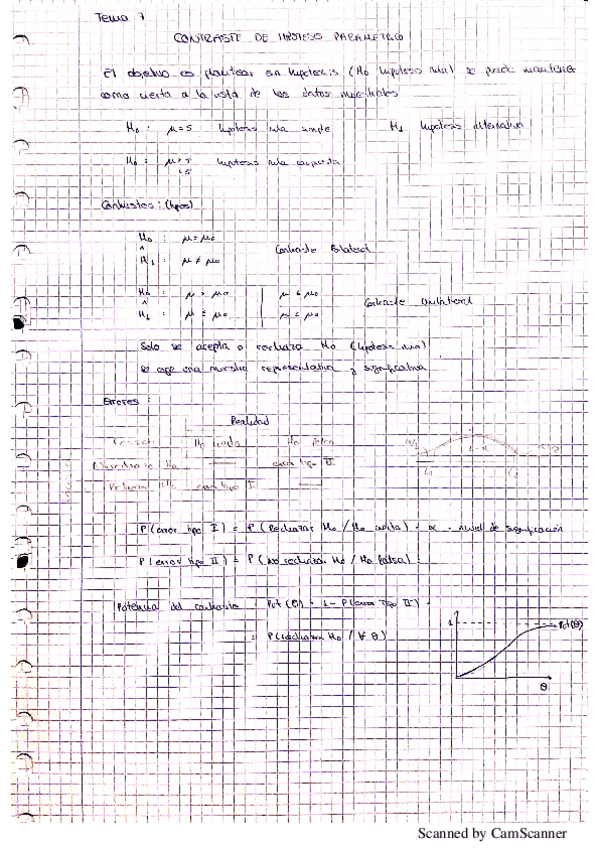 Tema 7
CONTRASTE DE HIPÓTESIS PARAMÉTRICO
El objetivo es plantear una hipótesis (H₀ hipótesis nula) se puede mantener
como cierta a la vista de los datos muestrales
H₀ : μ=5 hipótesis nula simple H₁ hipótesis alternativa
H₀ : μ>5 hipótesis nula compuesta
<5
Contrastes: (tipos)
H₀ : μ=μ₀
Contraste Bilateral
H₁ : μ≠μ₀
H₀ : μ ≥ μ₀
Contraste Unilateral
H₁ : μ
Solo se acepta o rechaza H₀ (hipótesis nula)
se coge una muestra representativa y significativa
Errores :
Realidad
H₀ cierta H₀ falsa
H₀ error tipo II
error tipo I
P(error tipo I) = P(Rechazar H₀ / H₀ cierta) = α = nivel de significación
P(error tipo II) = P(No rechazar H₀ / H₀ falsa)
Potencia del contraste = Pot(θ) = 1 - P(error tipo II) =
= P(rechazar H₀ / ∀ θ)
1 Pot(θ)
θ
Scanned by CamScanner